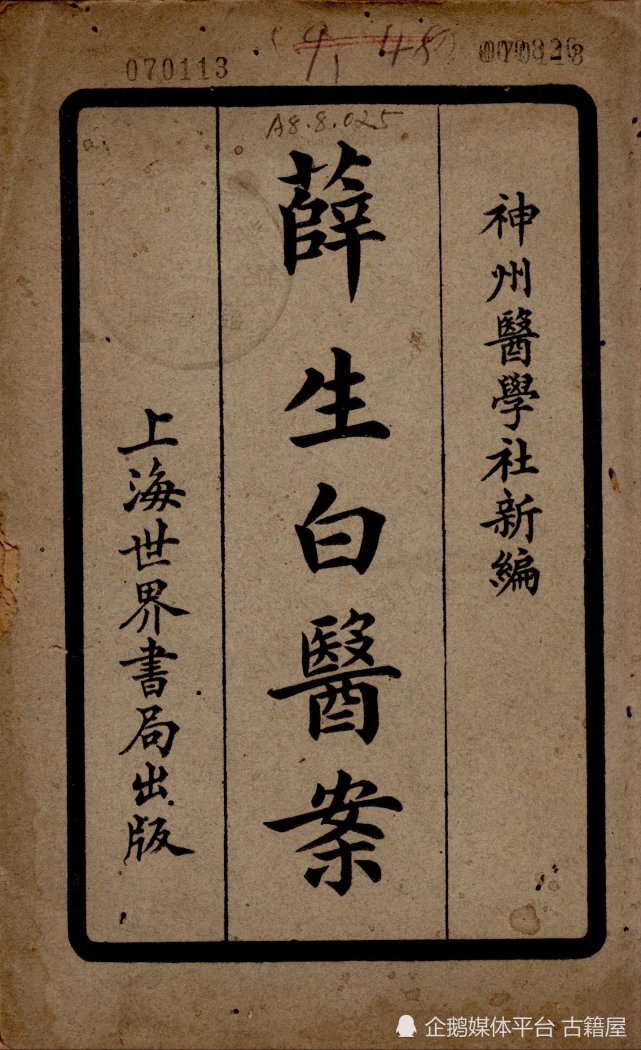 070113
A8.8.025
神州醫學社新編
薛生白醫案
上海世界書局出版
企鹅媒体平台 古籍屋